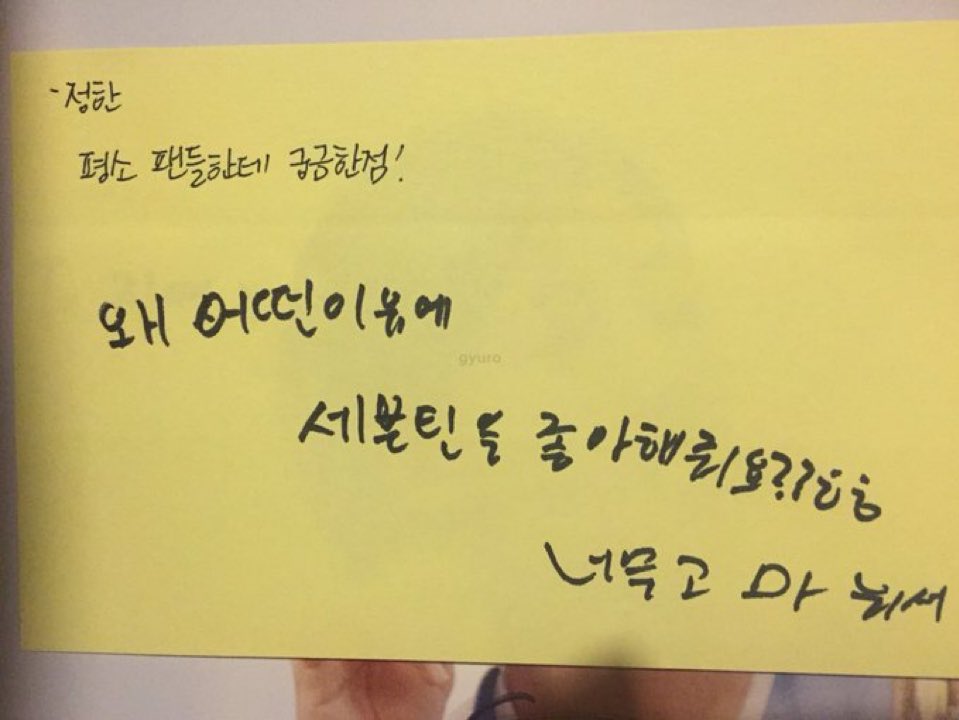 -정한
평소 팬들한테 궁금한점!
왜 어떤이유에
gyuro
세븐틴을 좋아해줘요??
너무 고마워서